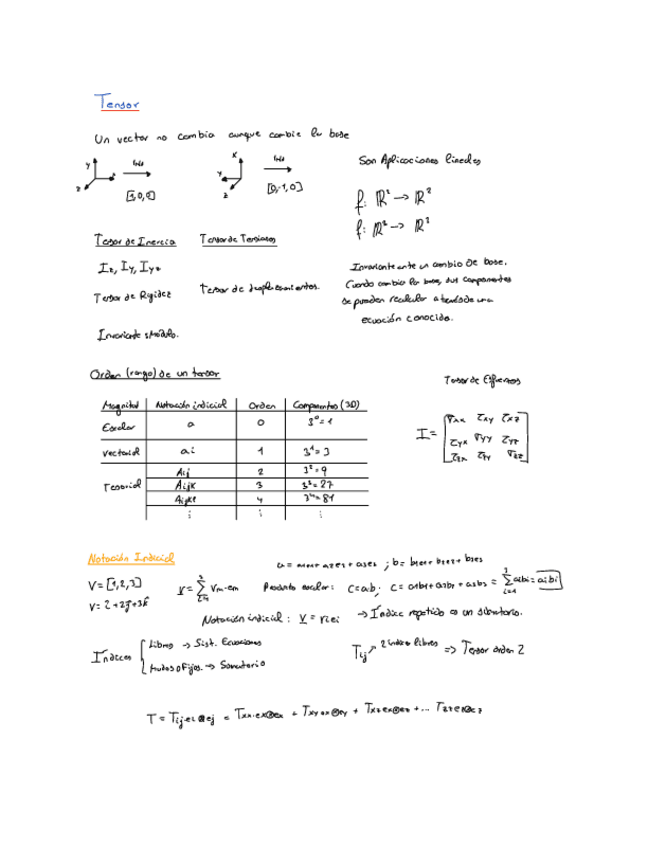 Tensor
Un vector no cambia aunque cambie la base
y
z
[1,0,0]
x
y
z
[0,-1,0]
Son Aplicaciones lineales
f: ℝ² → ℝ²
f: ℝ² → ℝ²
Tensor de Inercia
Tensor de Tensiones
Iz, Iy, Iyz
Tensor de Rigidez
Tensor de desplazamientos.
Invariante ante un cambio de base.
Cuando cambio la base, sus componentes
se pueden recalcular a través de una
ecuación conocida.
Invariante
Orden (rango) de un tensor
Tensor de Esfuerzos
Magnitud Notación indicial Orden Componentes (3D)
Escalar a 0 3⁰=1
Vectorial ai 1 3¹=3
Tensorial Aij 2 3²=9
Aijk 3 3³=27
Aijkl 4 3⁴=81
⋮ ⋮ ⋮
I = [σxx τxy τxz
τyx σyy τyz
τzx τzy σzz]
Notación Indicial
V = [1,2,3]
V = i+2j+3k
Producto escalar: c=a·b; c = a1b1+a2b2+a3b3 = Σ aibi = aibi
Notación indicial: V = viei → Índice repetido es un sumatorio.
Índices
Libres → Sist. Ecuaciones
Mudos o Fijos → Sumatorio
Tij 2 índices libres => Tensor orden 2
T = Tij·ei⊗ej = Txx·ex⊗ex + Txy·ex⊗ey + Txz ex⊗ez + ... Tzz ez⊗ez